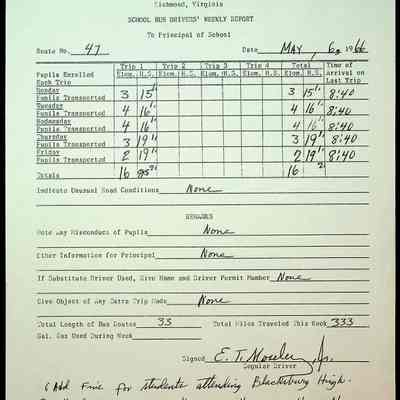 Richmond, Virginia
SCHOOL BUS DRIVERS' WEEKLY REPORT
To Principal of School
Route No. 47 Date MAY, 6, 1966
Trip 1 Trip 2 Trip 3 Trip 4 Total Time of
Pupils Enrolled Elem. H.S. Elem. H.S. Elem. H.S. Elem. H.S. Elem. H.S. Arrival on
Each Trip Last Trip
Monday
Pupils Transported 3 15 3 15 8:40
Tuesday
Pupils Transported 4 16 4 16 8:40
Wednesday
Pupils Transported 4 16 4 16 8:40
Thursday
Pupils Transported 3 19 3 19 8:40
Friday
Pupils Transported 2 19 2 19 8:40
Totals 16 16
Indicate Unusual Road Conditions None
REMARKS
Note Any Misconduct of Pupils None
Other Information for Principal None
If Substitute Driver Used, Give Name and Driver Permit Number None
Give Object of Any Extra Trip Made None
Total Length of Bus Routes 33 Total Miles Traveled This Week 333
Gal. Gas Used During Week
Signed E. T. Mosley, Jr.
Regular Driver
for students attending Blacksburg High.